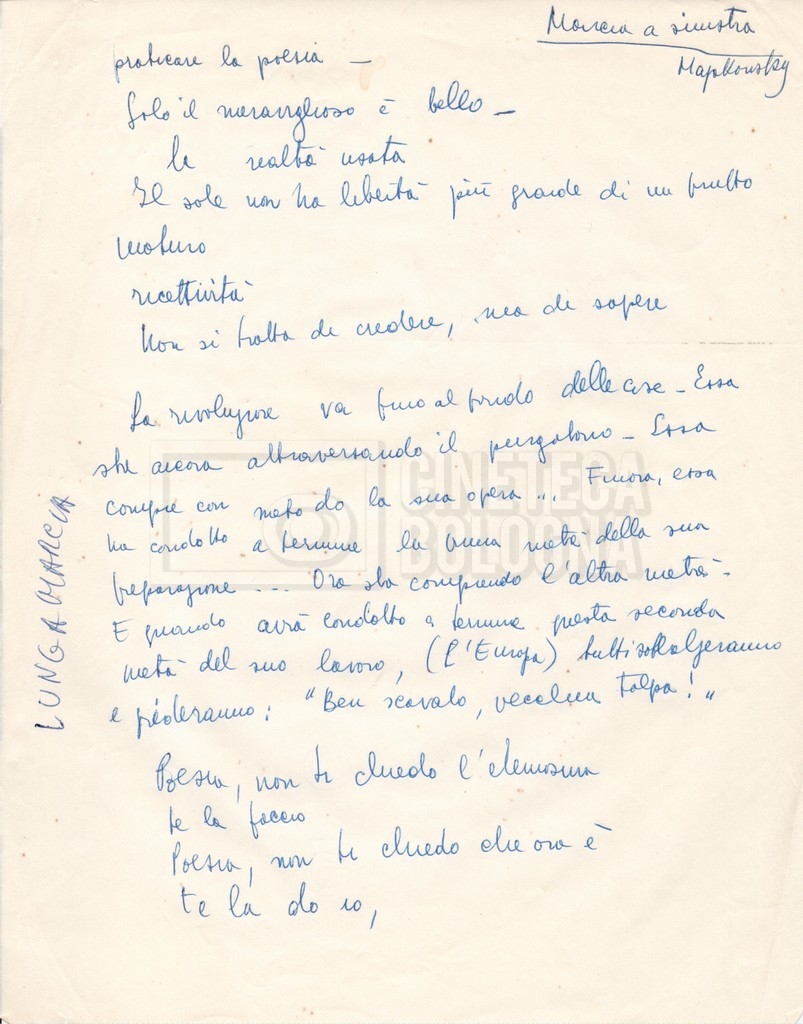 Marcia a sinistra
Majakowsky
praticare la poesia –
Solo il meraviglioso è bello –
la realtà usata
Il sole non ha libertà più grande di un frutto
maturo
ricettività
Non si tratta di credere, ma di sapere
La rivoluzione va fino al fondo delle cose – Essa
sta ancora attraversando il purgatorio – Essa
compie con metodo la sua opera... Finora, essa
ha condotto a termine la prima metà della sua
preparazione ... Ora sta compiendo l'altra metà –
E quando avrà condotto a termine questa seconda
metà del suo lavoro, (l'Europa) tutti
e grideranno: "Ben scavato, vecchia talpa!"
Poesia, non ti chiedo l'elemosina
te la faccio
Poesia, non ti chiedo che ora è
te la do io,
LUNGA MARCIA
CINETECA
BOLOGNA